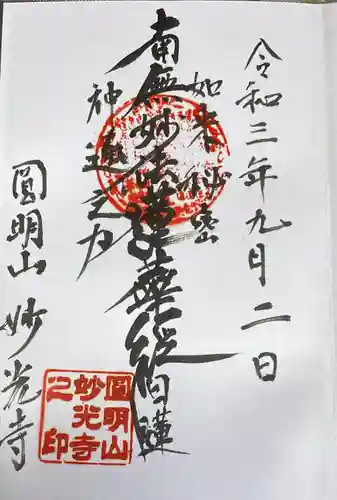 令和三年九月二日
如来秘密
南無妙法蓮華経 日蓮
神通之力
圓明山 妙光寺
圓明山
妙光寺
之印